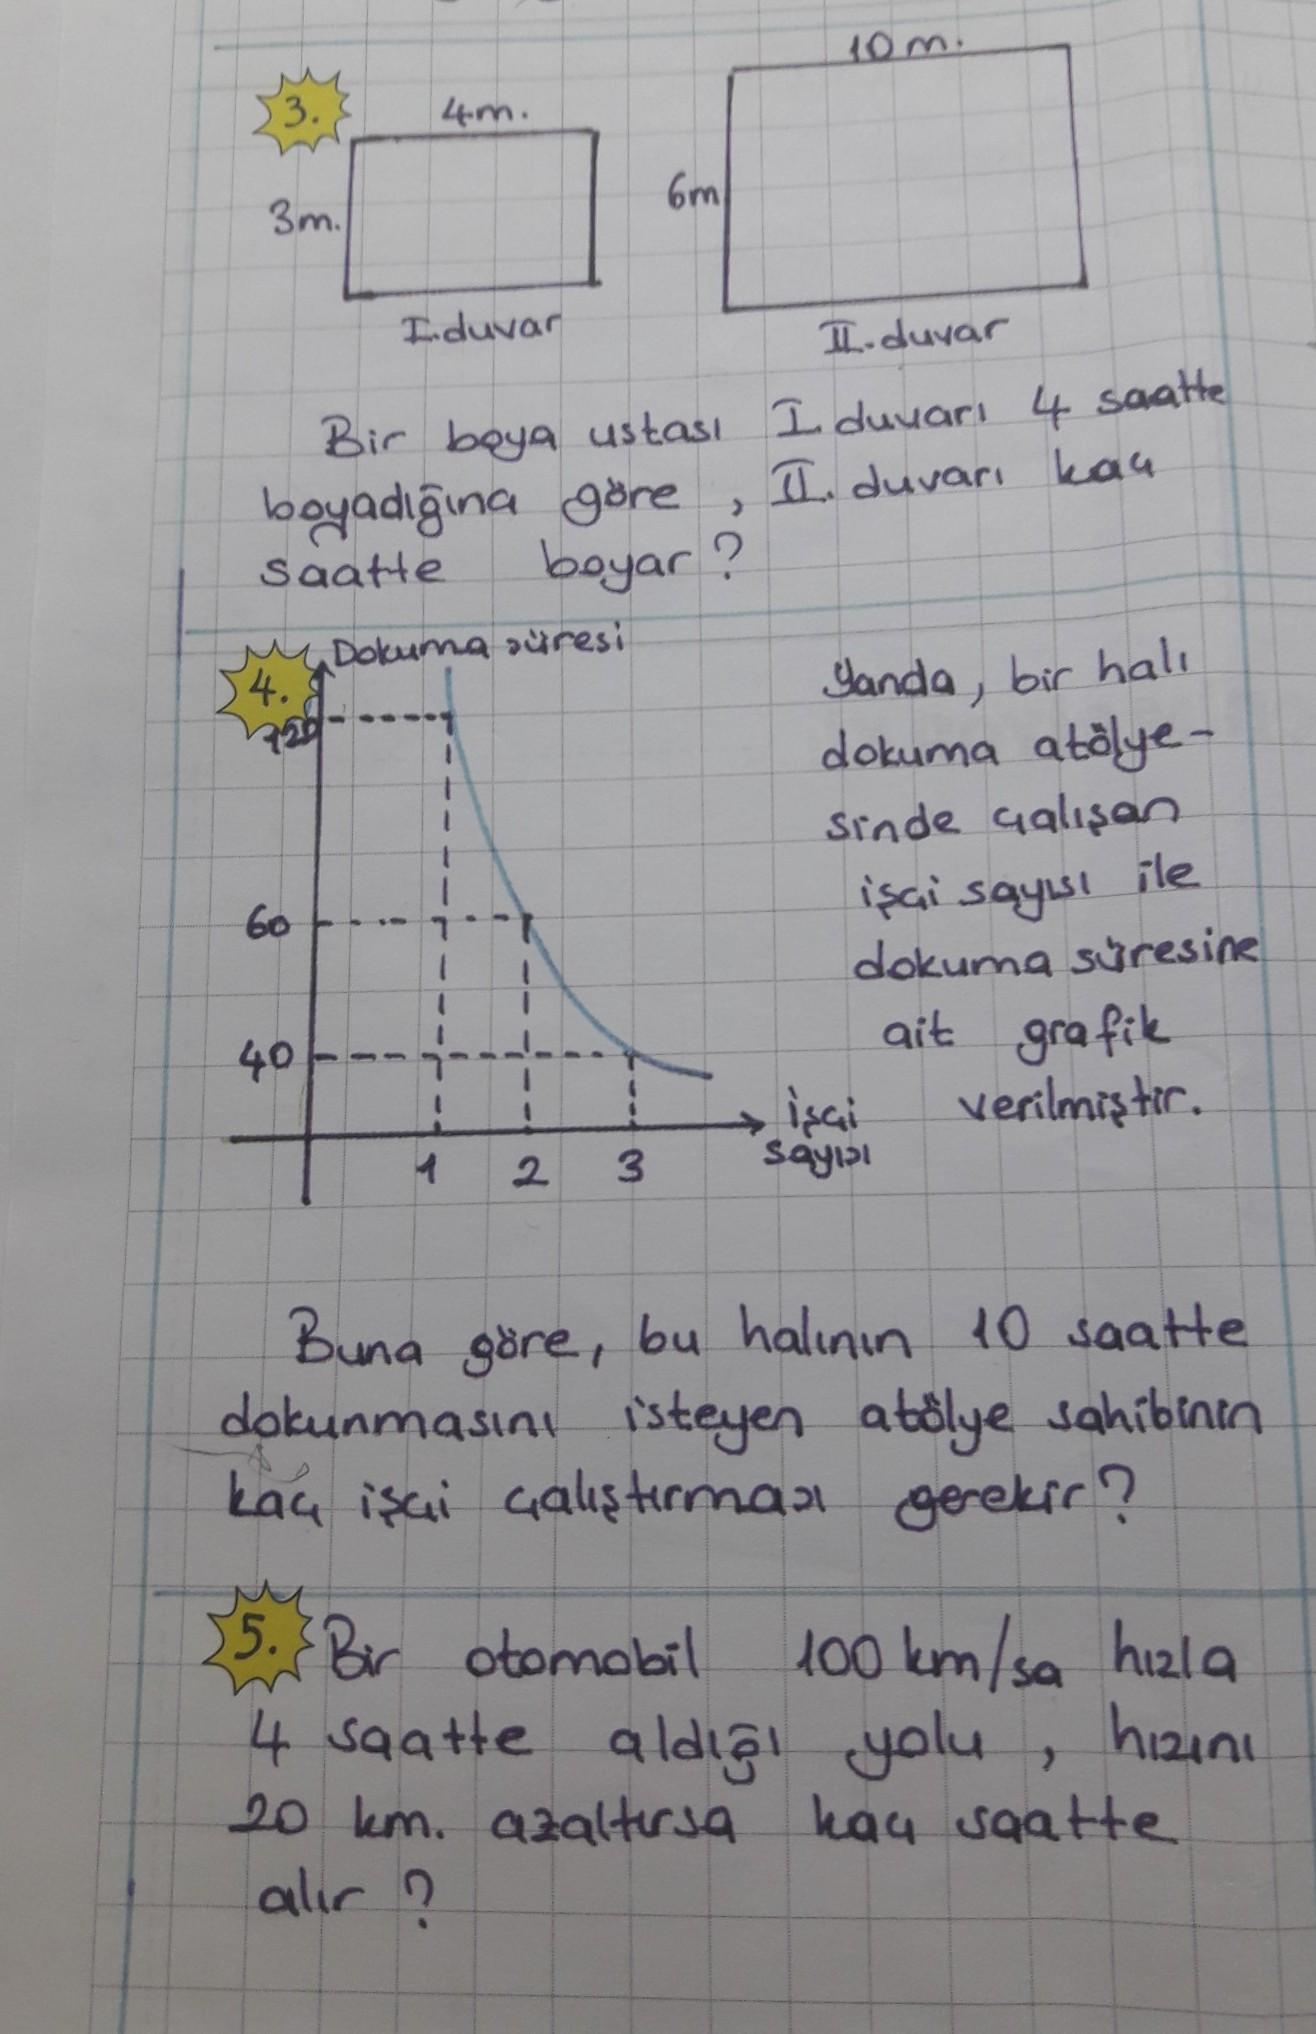 10 m.
3.
4m.
3m.
6m
I.duvar
II.duvar
Bir boya ustası I duvarı 4 saatte
boyadığına göre, II. duvarı kaç
saatte boyar?
4.
Dokuma süresi
120
60
40
1 2 3
İşçi
sayısı
Yanda, bir halı
dokuma atölye-
sinde çalışan
işçi sayısı ile
dokuma süresine
ait grafik
verilmiştir.
Buna göre, bu halının 10 saatte
dokunmasını isteyen atölye sahibinin
kaç işçi çalıştırması gerekir?
5. Bir otomobil 100 km/sa hızla
4 saatte aldığı yolu, hızını
20 km. azaltırsa kaç saatte
alır?